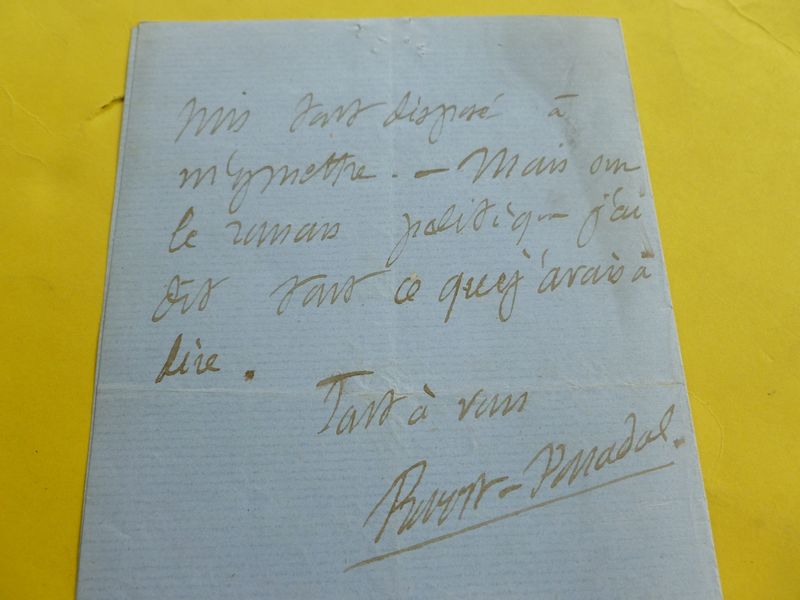 suis tout disposé à
m'y mettre. — Mais sur
le roman politique j'ai
dit tout ce que j'avais à
dire.
Tout à vous
Prevost-Paradol.